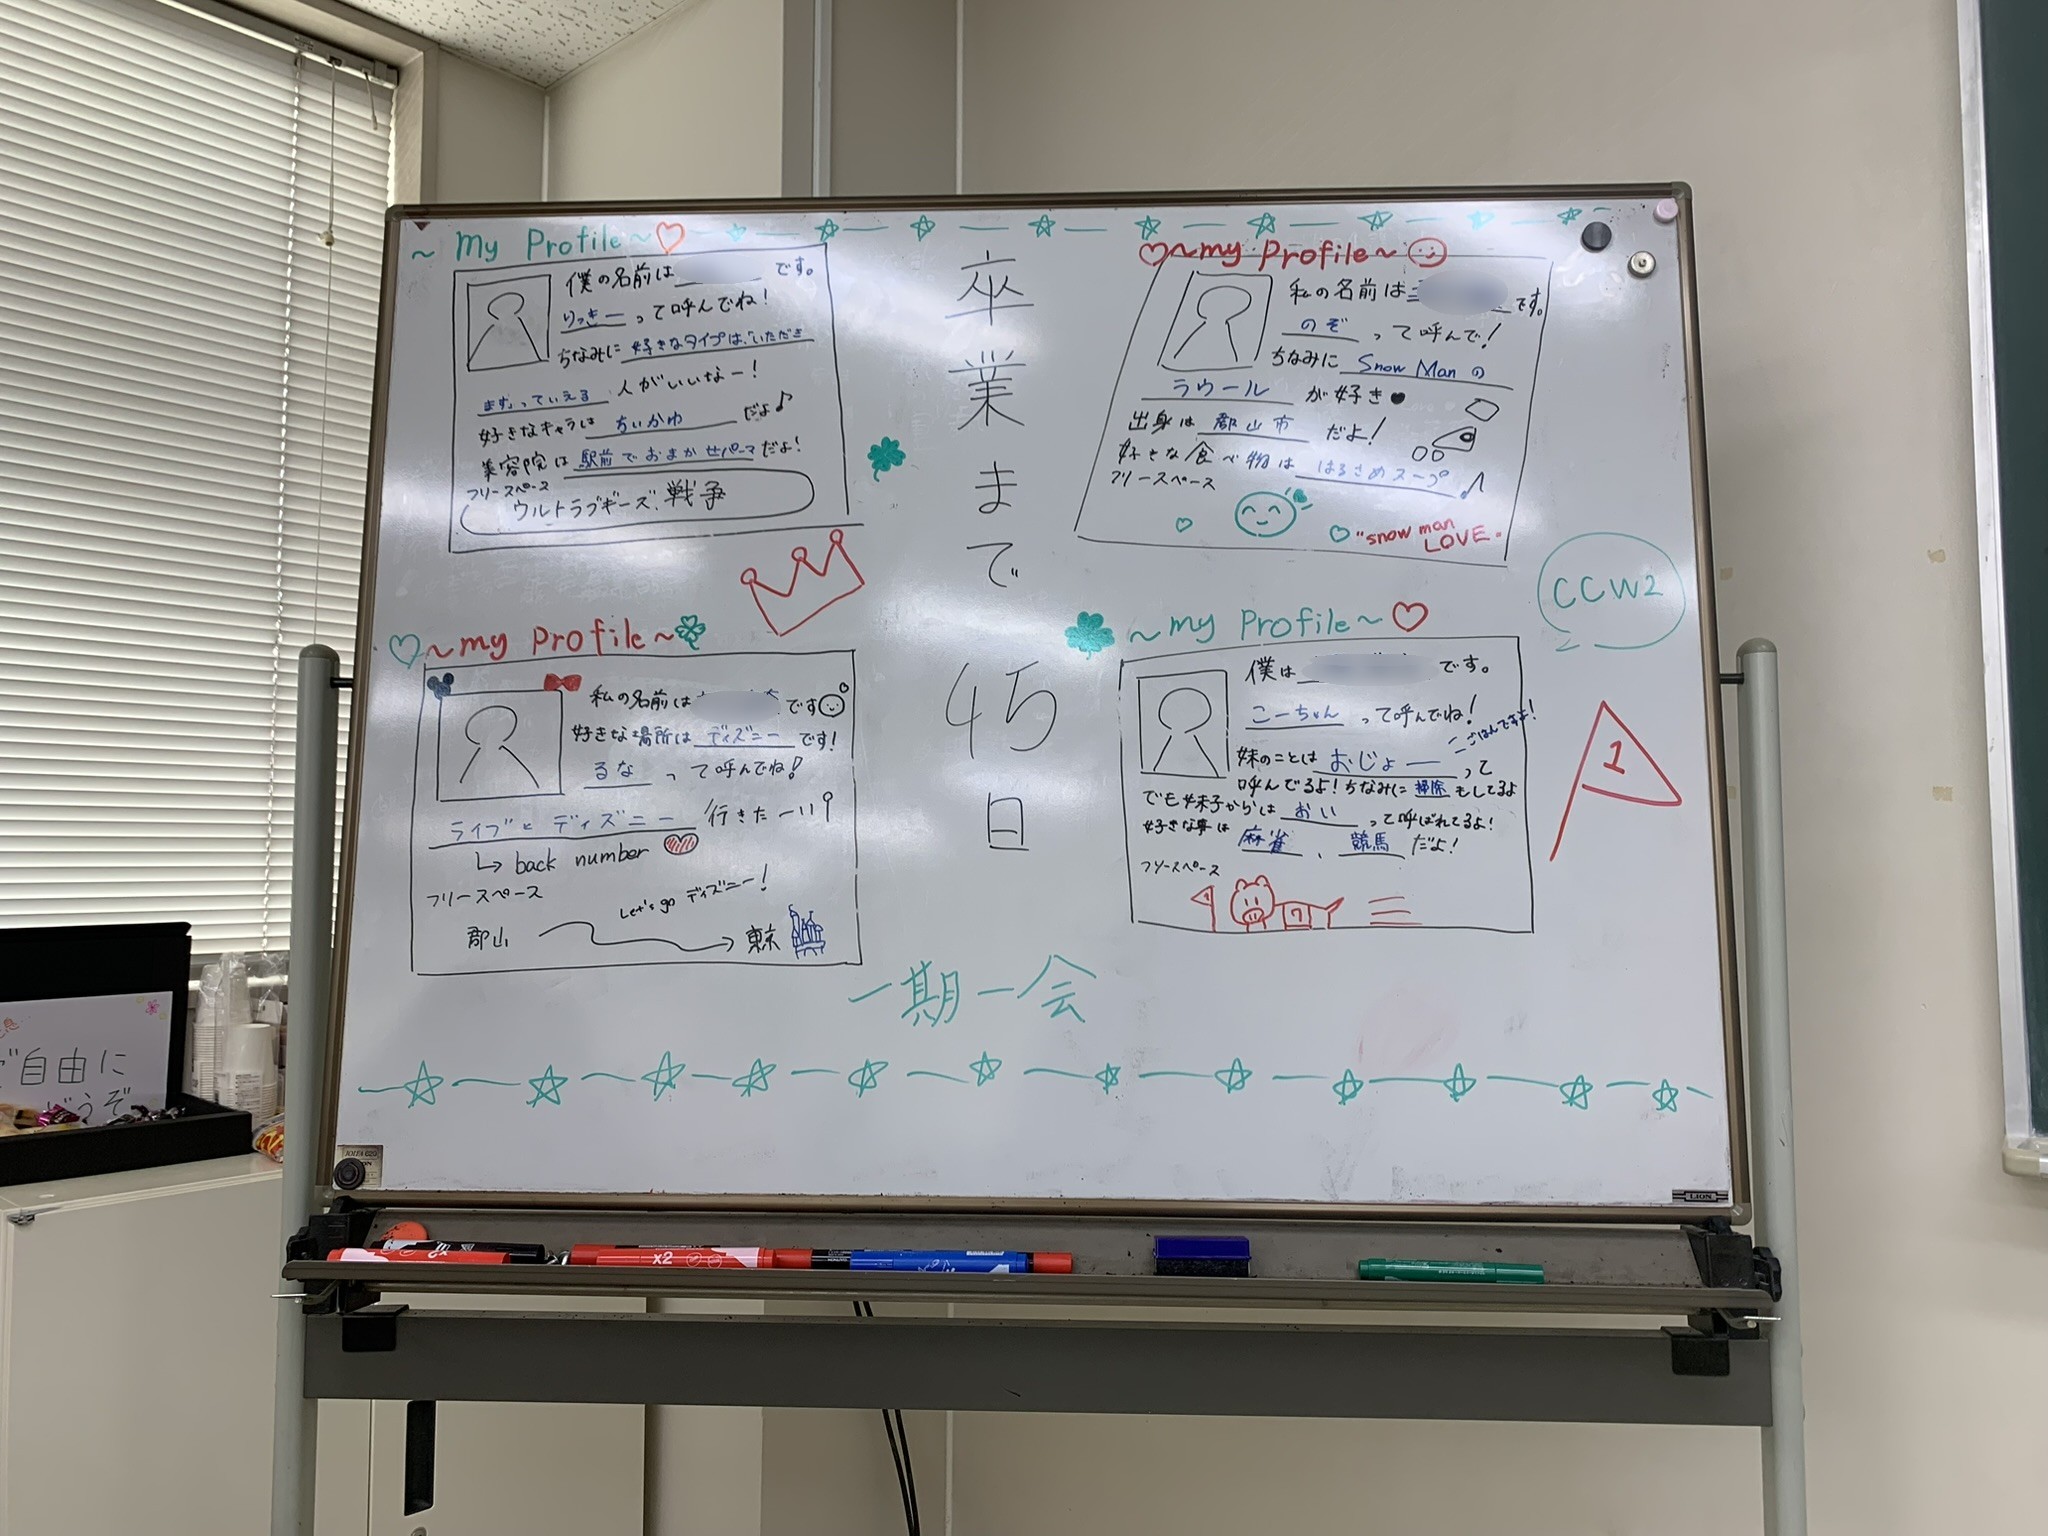 ~ My Profile ~
僕の名前は です。
りっきー って呼んでね!
ちなみに 好きなタイプは、「いただき
ます」っていえる 人がいいなー!
好きなキャラは ちいかわ だよ♪
美容院は 駅前でおまかせパーマ だよ!
フリースペース
ウルトラブギーズ、戦争
卒業まで
45日
~my Profile~
私の名前は です。
のぞ って呼んで!
ちなみに Snow Man の
ラウール が好き
出身は 郡山市 だよ!
好きな食べ物は はるさめスープ ♪
フリースペース
"snow man
LOVE"
~my Profile~
私の名前は です
好きな場所は ディズニー です!
るな って呼んでね!
ライブと ディズニー 行きたーい!
↳ back number
フリースペース
Let's go ディズニー!
郡山 → 東京
~my Profile~
僕は です。
こーちゃん って呼んでね!
ごはんですよ!
妹のことは おじょー って
呼んでるよ! ちなみに 掃除 もしてるよ
でも妹子からは おい って呼ばれてるよ!
好きな事は 麻雀、競馬 だよ!
フリースペース
7
CCW2
1
一期一会
自由に
どうぞ
LION
x2